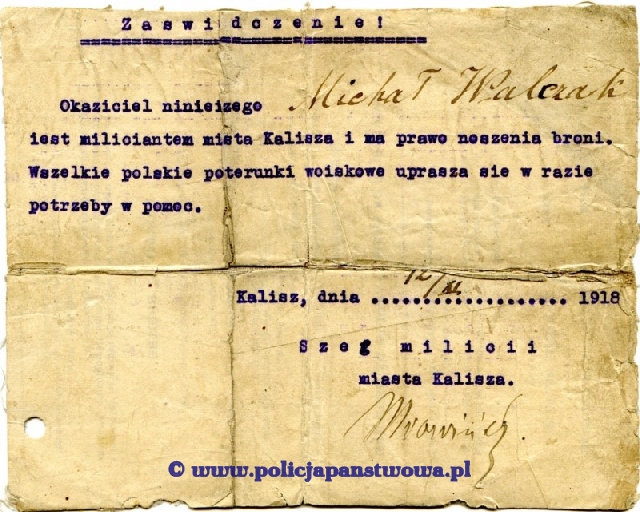 Zaswidczenie!
Okaziciel niniejzego Michał Walczak
iest miliciantem mista Kalisza i ma prawo noszenia broni.
Wszelkie polskie poterunki woiskowe uprasza sie w razie
potrzeby w pomoc.
Kalisz, dnia ....12/XI.................... 1918
Szef milicii
miasta Kalisza.
© www.policjapanstwowa.pl